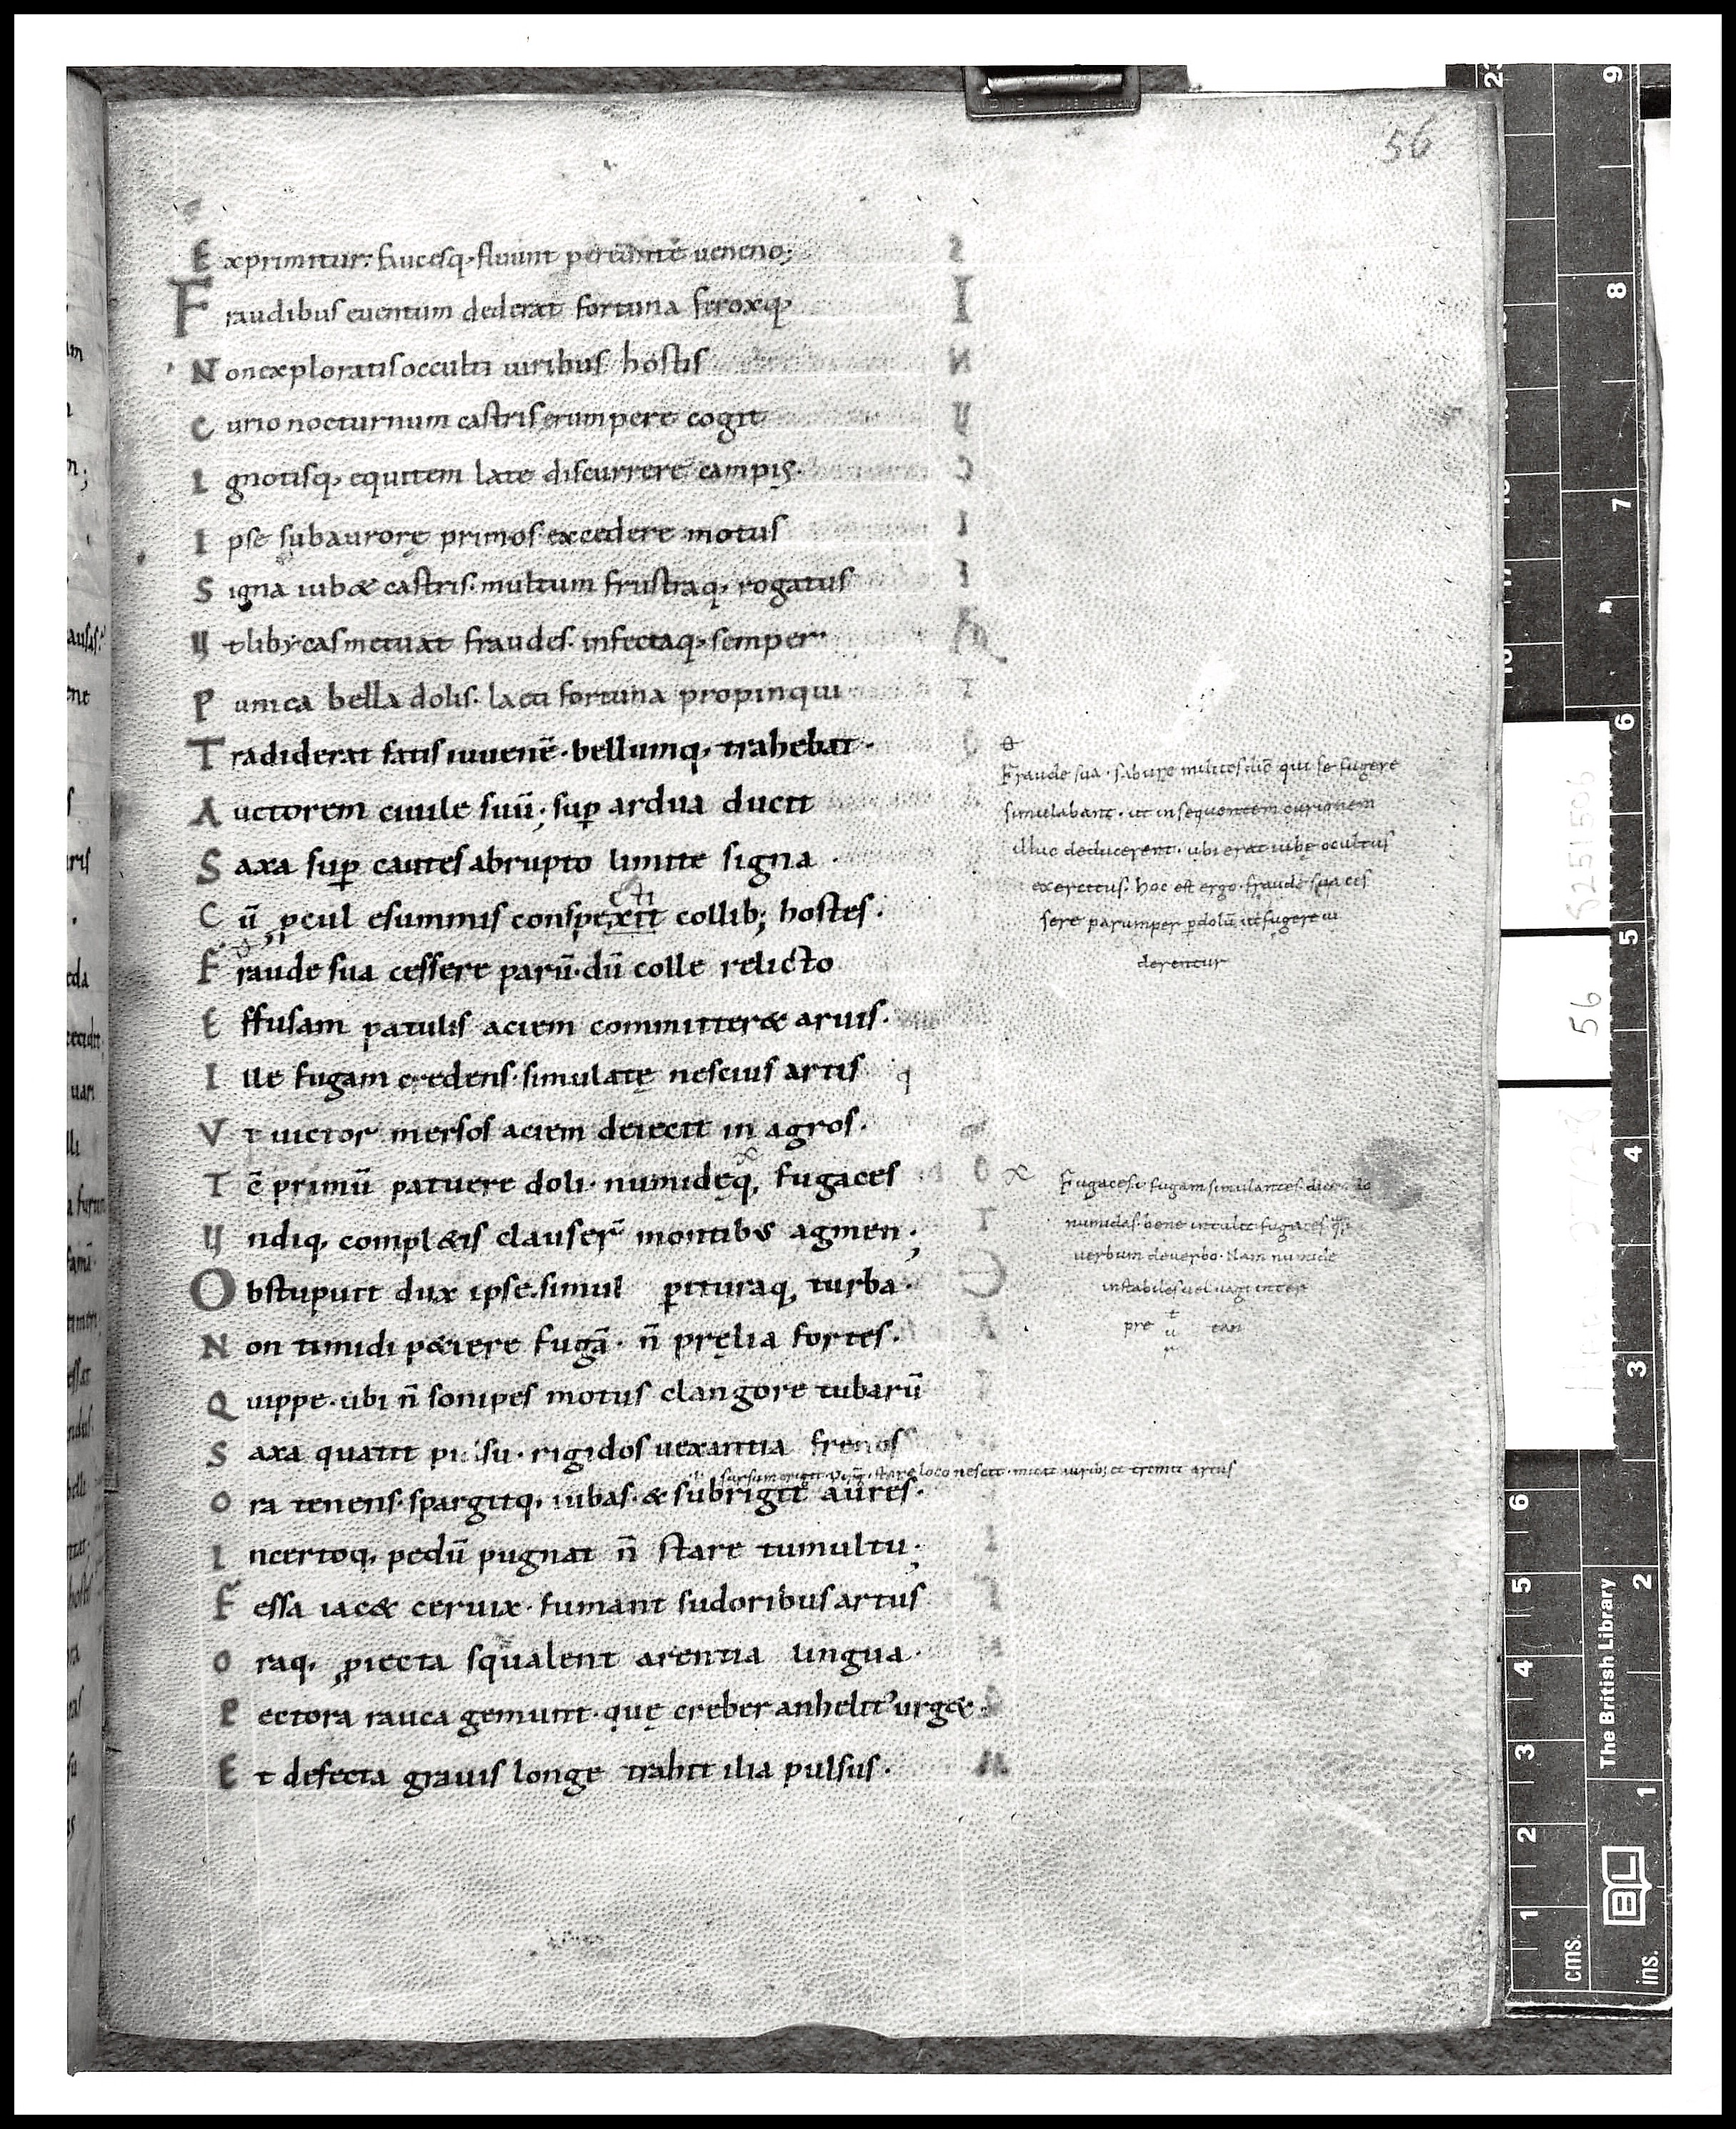 56
Exprimitur: faucesq; fluunt pereunte ueneno;
Fraudibus euentum dederat fortuna feroxq;
Non exploratis occulti uiribus hostis
Curio nocturnum castris erumpere cogit
Ignotisq; equitem late discurrere campis.
Ipse sub aurorę primos excedere motus
Signa iub& castris. multum frustraq; rogatus
Ut libycas metuat fraudes. infectaq; semper
Punica bella dolis. laeti fortuna propinqui
Tradiderat fatis iuuenē. bellumq; trahebat.
Auctorem ciuile suū; suꝑ ardua ducit
Saxa suꝑ cautes abrupto limite signa.
Cū ꝓcul esummis conspexit collib; hostes.
Fraude sua cessere parū. dū colle relicto
Effusam patulis aciem committer& aruis.
Ille fugam credens. simulatę nescius artis
Vt uictor mersos aciem deiecit in agros.
Tc̄ primū patuere doli. numidęq; fugaces
Undiq; compl&is clauser̄ montibus agmen;
Obstupuit dux ipse. simul ꝑituraq; turba.
Non timidi p&iere fugā. n̄ pręlia fortes.
Quippe. ubi n̄ sonipes motus clangore tubarū
Saxa quatit pulsu. rigidos uexantia frenos
Ora tenens. spargitq; iubas. & subrigit aures.
Incertoq; pedū pugnat n̄ stare tumultu;
Fessa iac& ceruix. fumant sudoribus artus
Oraq; ꝓiecta squalent arentia lingua.
Pectora rauca gemunt. quę creber anhelit' urg&.
Et defecta grauis longe trahit ilia pulsus.
Fraude sua. saburrę milites dic̄ qui se fugere
simulabant. ut insequentem curionem
illuc deducerent. ubi erat iubę ocultus
exercitus. hoc est ergo. fraude sua ces
sere parumper ꝑ dolū ut fugere ui
derentur
x Fugaces. fugam simulantes
numidas. bene
uerbum de uerbo. Nam numide
instabiles uel uagi inter
pre
stare loco nescit. micat aurib; et tremit artus
56
The British Library
BL
cms.
ins.
1
2
3
4
5
6
1
2
3
4
5
6
7
8
9